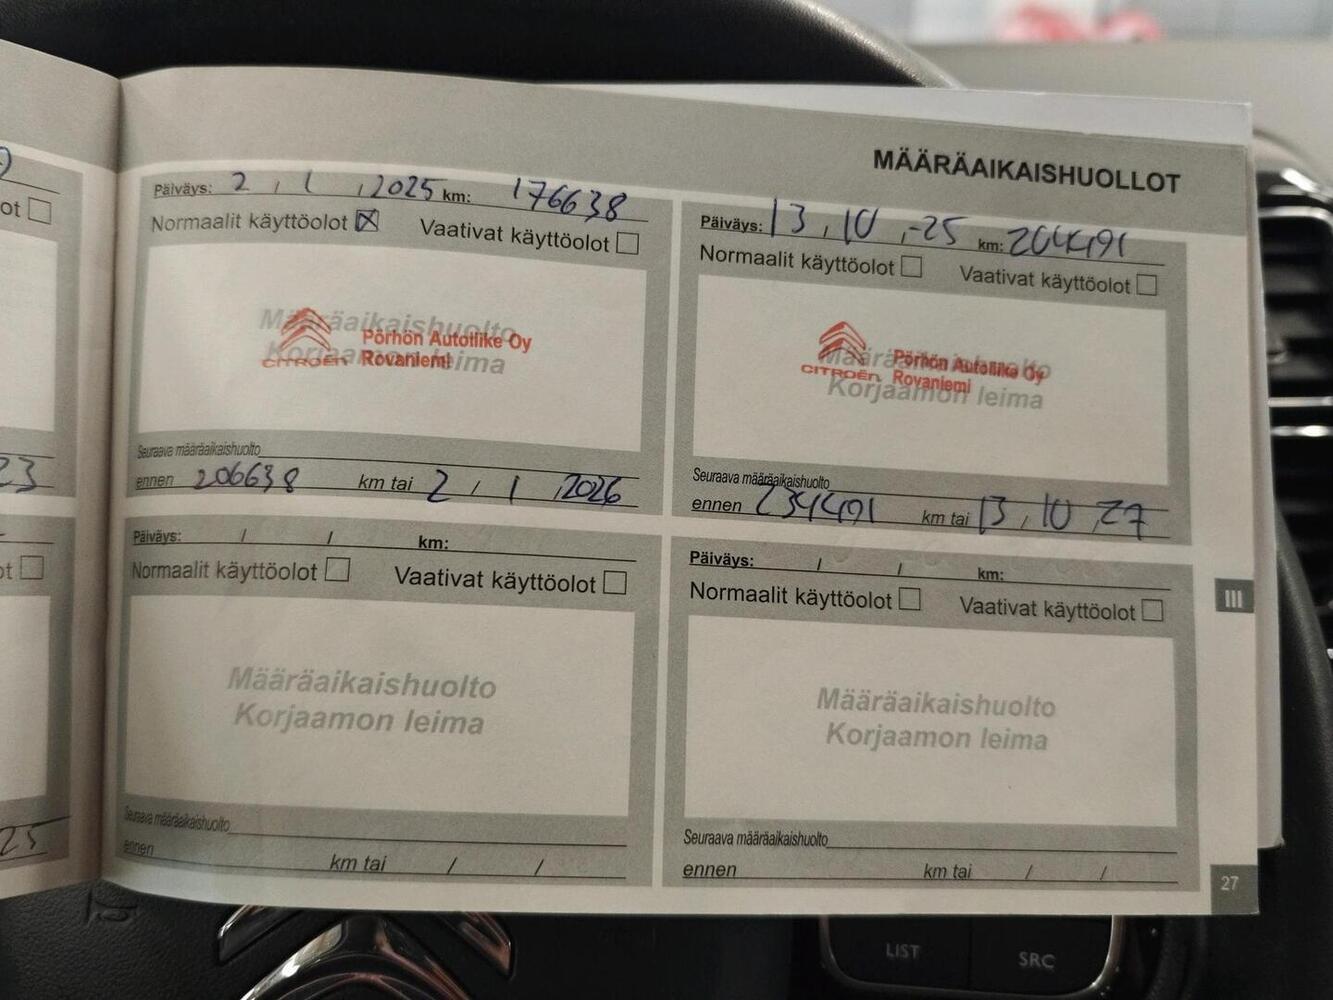 MÄÄRÄAIKAISHUOLLOT
Päiväys: 2 / 1 / 2025 km: 176638
Normaalit käyttöolot ☒ Vaativat käyttöolot ☐
Määräaikaishuolto
Korjaamon leima
CITROËN
Pörhön Autoliike Oy
Rovaniemi
Seuraava määräaikaishuolto
ennen 206638 km tai 2 / 1 / 2026
Päiväys: 13 / 10 / -25 km: 204491
Normaalit käyttöolot ☐ Vaativat käyttöolot ☐
Määräaikaishuolto
Korjaamon leima
CITROËN
Pörhön Autoliike Oy
Rovaniemi
Seuraava määräaikaishuolto
ennen 234491 km tai 13 / 10 / 27
Päiväys: / / km:
Normaalit käyttöolot ☐ Vaativat käyttöolot ☐
Määräaikaishuolto
Korjaamon leima
Seuraava määräaikaishuolto
ennen km tai / /
Päiväys: / / km:
Normaalit käyttöolot ☐ Vaativat käyttöolot ☐
Määräaikaishuolto
Korjaamon leima
Seuraava määräaikaishuolto
ennen km tai / /
III
27
ot ☐
23
ot ☐
25
LIST
SRC